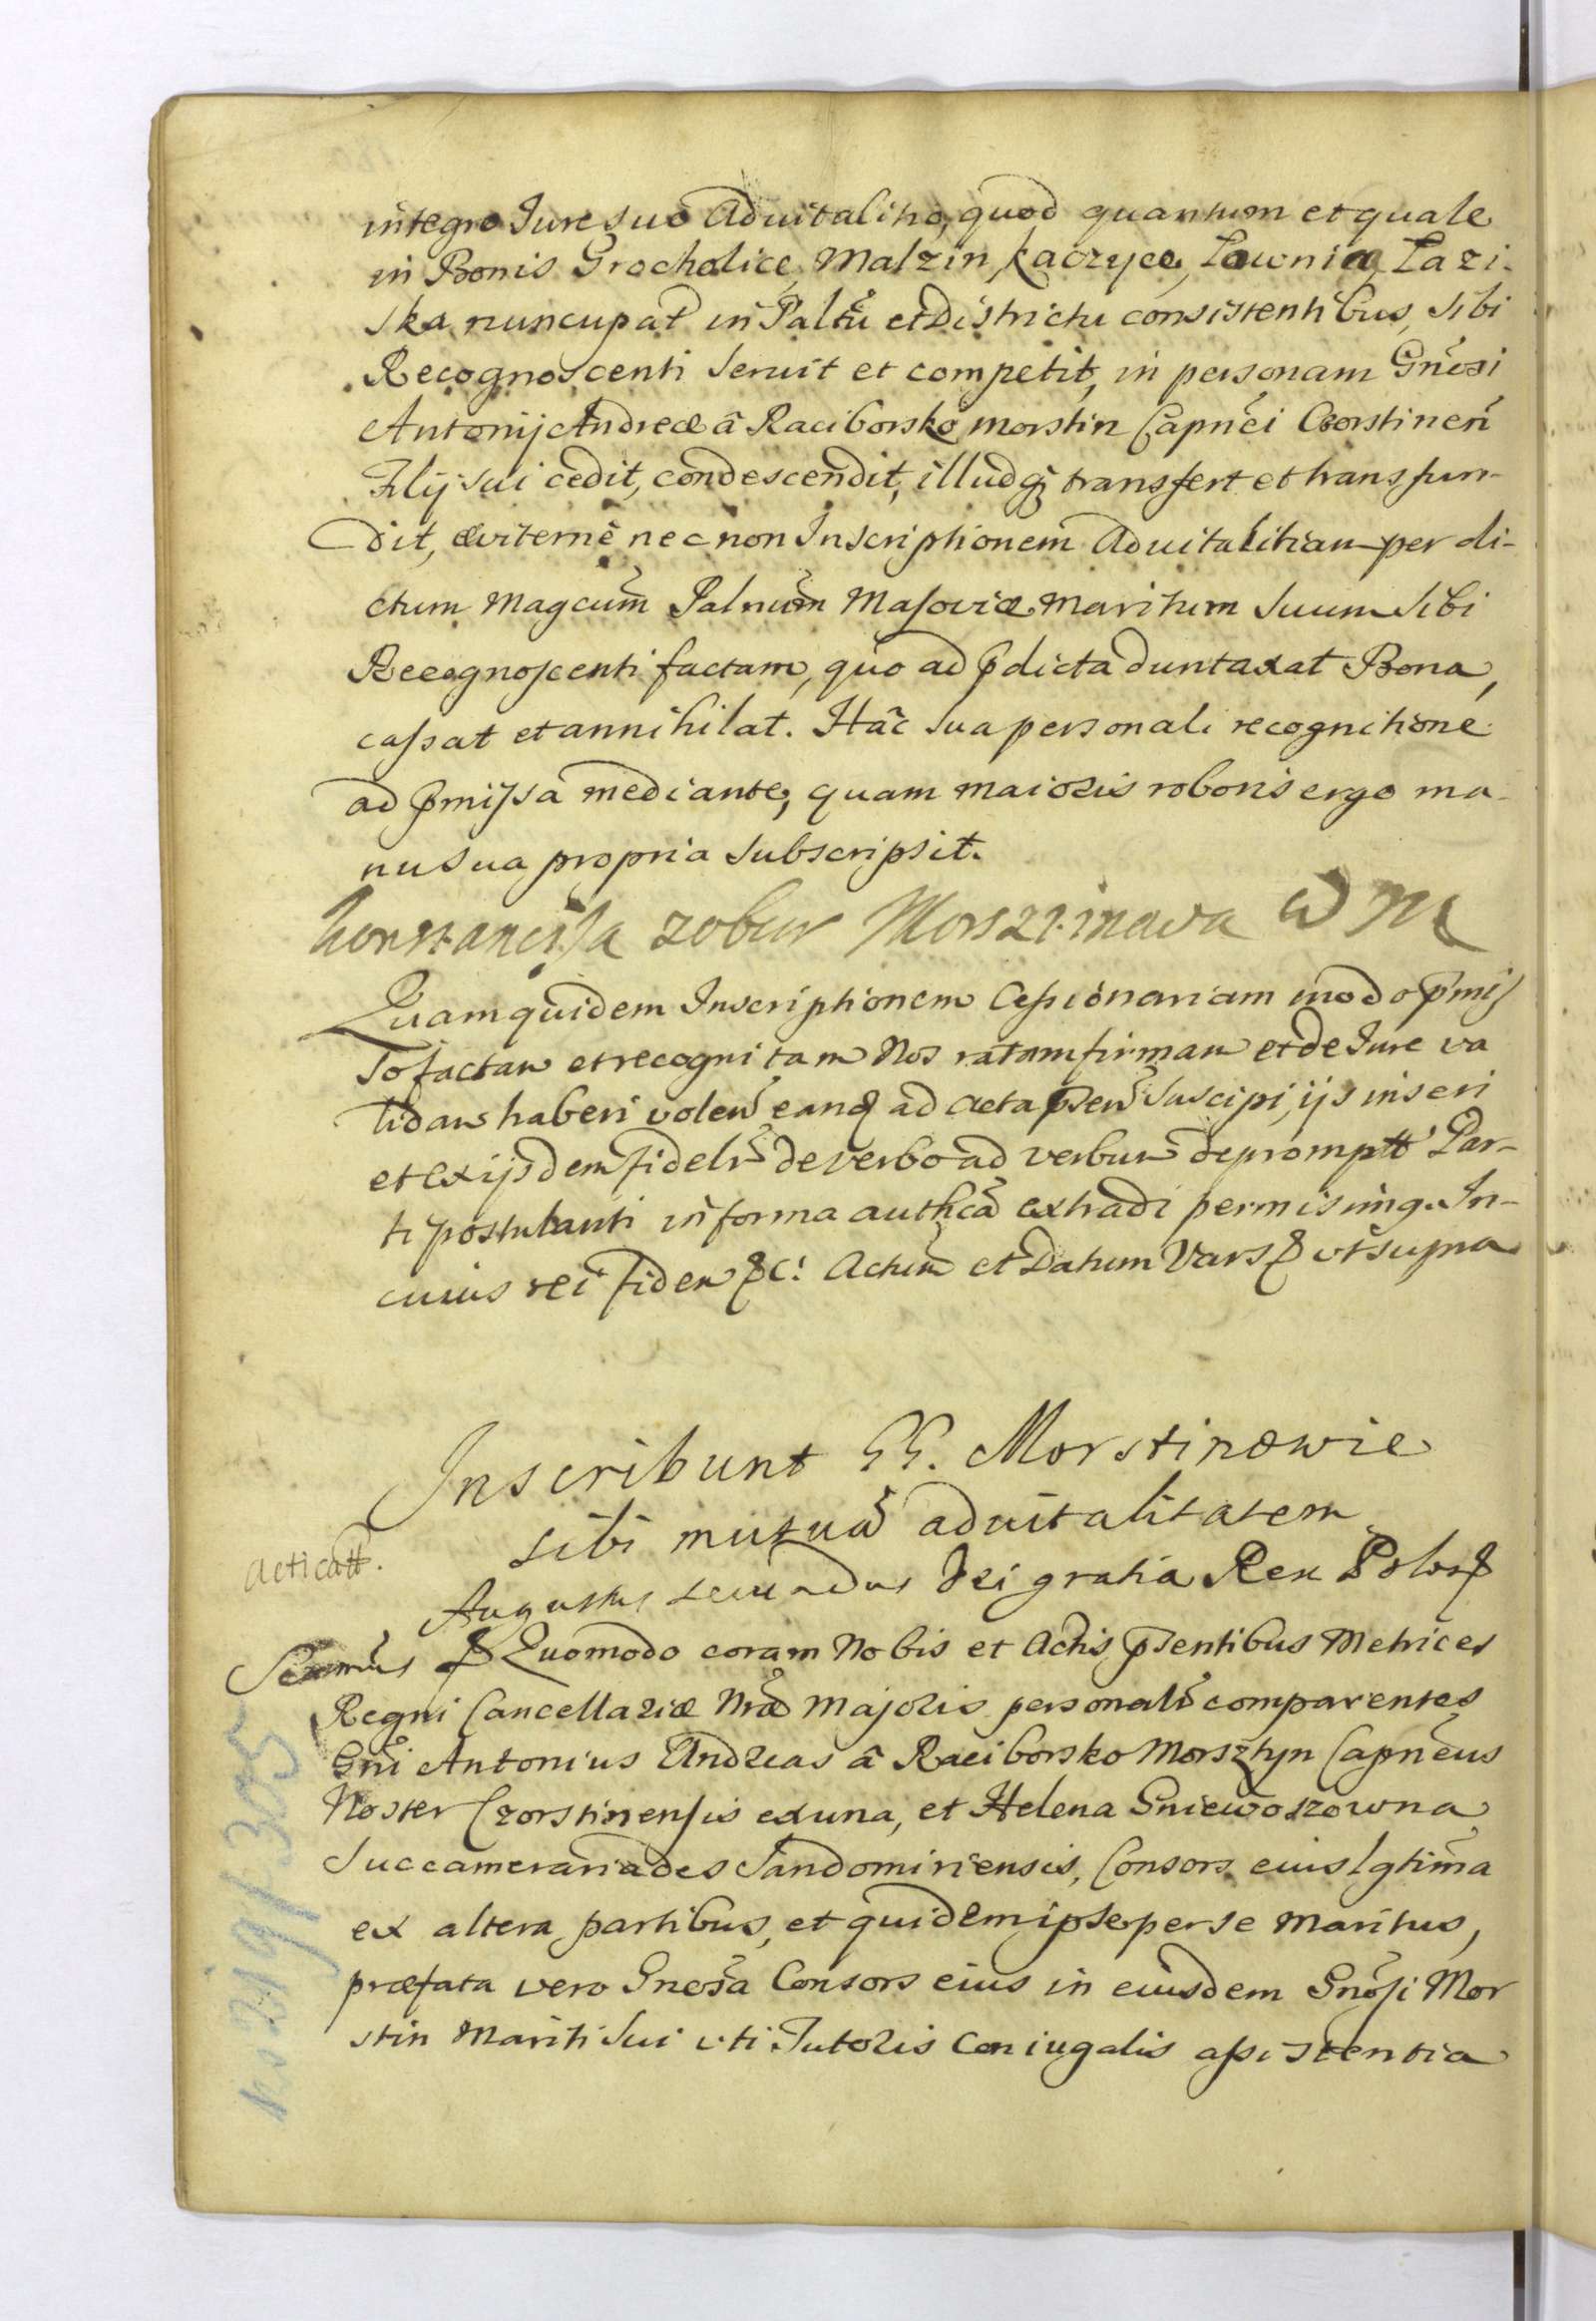 integro Jure suo Aduitalitio, quod quantum et quale
in Bonis Grocholice, Malzin, Kaczyce, Lownica, Lazi-
ska nuncupat in Paltũ et Districtu consistentibus, sibi
Recognoscenti seruit et competit, in personam Gnosi
Antonij Andreæ â Raciborsko Morstin Capnei Czorstinen
Filij sui cedit, condescendit, illudq transfert et transfun-
dit, æviterne nec non Inscriptionem Aduitalitiam per di-
ctum Magcum Palnum Masoviæ Maritum suum sibi
Recognoscenti factam, quo ad pdicta duntaxat Bona,
cassat et annihilat. Hâc sua personali recognitione
ad pmissa mediante, quam maioris roboris ergo ma-
nu sua propria subscripsit.
Konstancyja z obur Morsztinowa W M
Quam quidem Inscriptionem Cessionariam modo pmis
so factam et recognitam Nos ratam firmam et de Jure va
lidam haberi volen eamq ad Acta psen suscipi, ijs inseri
et ex ijsdem fidelr de verbo ad verbum deprompt Par-
ti postulanti in forma authca extradi permisimq. In-
cuius rei fidem &c: Actum et Datum Vars ut supra
Inscribunt GG. Morstinowie
sibi mutuã aduitalitatem
Acticatt.
Augustus secundus Dei gratia Rex Polo
Quomodo coram Nobis et Actis psentibus Metrices
Regni Cancellariæ Nræ Majoris personalr comparentes
Gni Antonius Andreas â Raciborsko Morsztyn Capneus
Noster Czorstinensis ex una, et Helena Gniewoszowna
Succamerariades Sandomiriensis, Consors eius lgtima
ex altera partibus, et quidem ipse per se Maritus,
præfata vero Gnosa Consors eius in eiusdem Gnosi Mor
stin Mariti sui uti Tutoris Coniugalis assistentia
ks 219 f 305